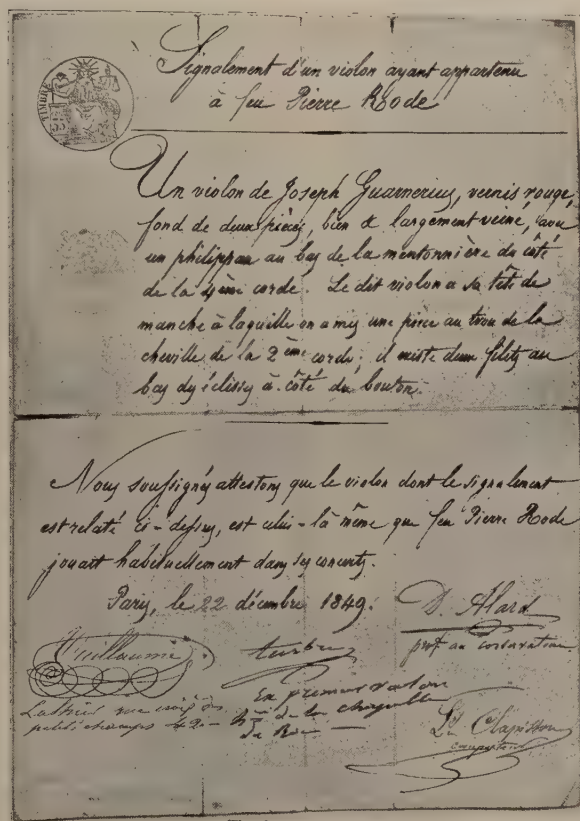 TIMBRE
Signalement d'un violon ayant appartenu
à feu Pierre Rode
Un violon de Joseph Guarnerius, vernis rouge,
fond de deux pièces, bien & largement veiné, avec
un philippan au bas de la mentonnière du côté
de la 4ème corde. Le dit violon a sa tête de
manche à laquelle on a mis une pièce au trou de la
cheville de la 2ème corde; il existe deux filets au
bas des éclisses à côté du bouton.
Nous soussignés attestons que le violon dont le signalement
est relaté ci-dessus, est celui-là même que feu Pierre Rode
jouait habituellement dans ses concerts.
Paris, le 22 décembre 1849.
D. Alard
prof au conservatoire
Vuillaume
Luthier rue croix des
petits champs 42
Ex premier violon
de la chapelle
du Roi
Ls Clapisson
compositeur